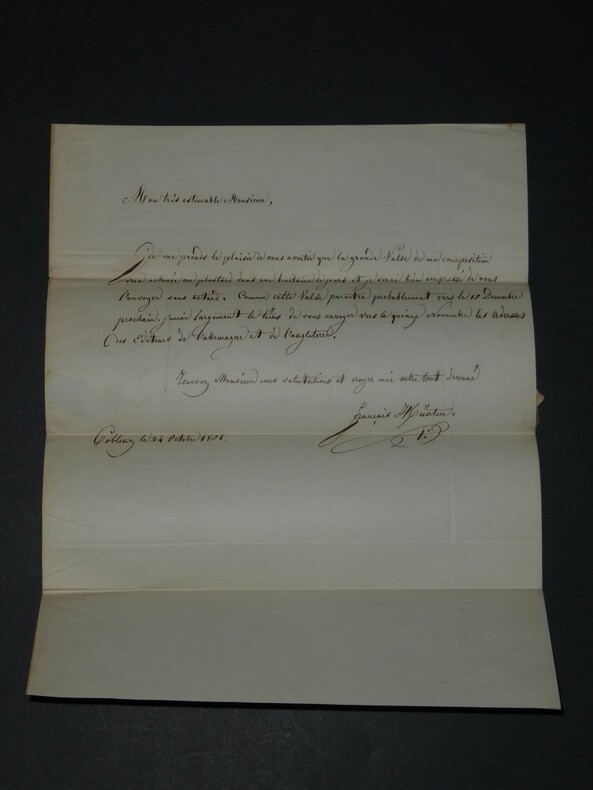 Mon très estimable Monsieur,
Je me prends le plaisir de vous avertir que la grande Valse de ma composition
sera achevée au plustard dans une huitaine de jours et je serai bien empressé de vous
l'envoyer sans retard. Comme cette Valse paraitra probablement vers le 15 Decembre
prochain, j'aurai largement le tems de vous envoyer vers le quinze Novembre les adresses
des Editeurs de l'allemagne et de l'angleterre.
Recevez Monsieur mes salutations et croyez moi votre tout devoué
François Hünten.
Coblenz le 24 Octobre